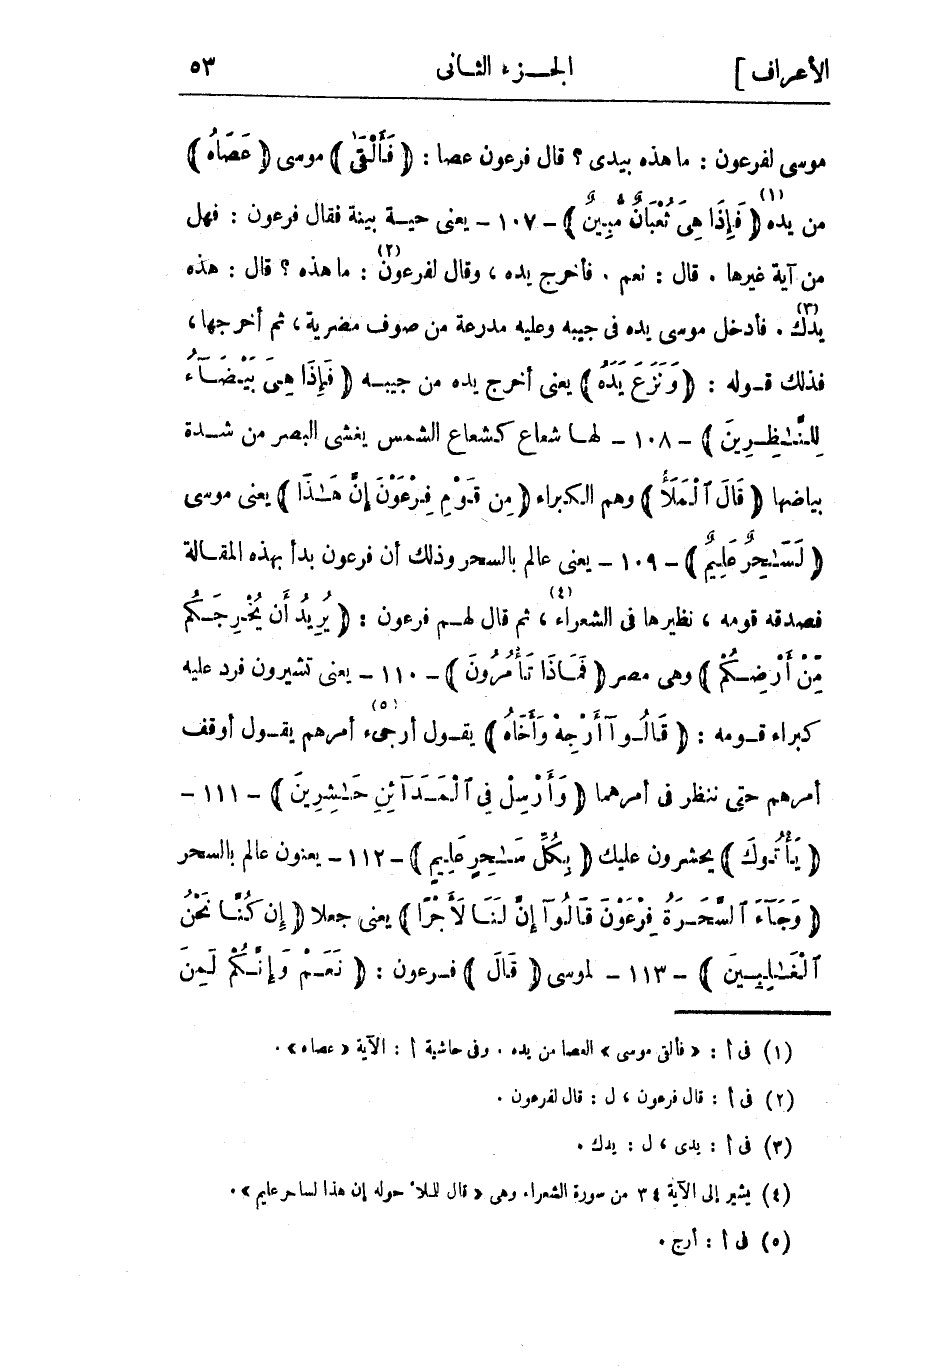 الأعراف] الجـزء الثـانى ٥٣
موسى لفرعون : ما هذه بيدى ؟ قال فرعون عصا : ﴿ فَأَلْقَىٰ ﴾ موسى ﴿ عَصَاهُ ﴾
من يده (١) ﴿ فَإِذَا هِىَ ثُعْبَانٌ مُّبِينٌ ﴾ - ١٠٧ - يعنى حيـة بينة فقال فرعون : فهل
من آية غيرها . قال : نعم . فأخرج يده ، وقال لفرعون (٢) : ما هذه ؟ قال : هذه
يدك (٣) . فأدخل موسى يده فى جيبه وعليه مدرعة من صوف مضرية ، ثم أخرجها ،
فذلك قـوله : ﴿ وَنَزَعَ يَدَهُ ﴾ يعنى أخرج يده من جيبـه ﴿ فَإِذَا هِىَ بَيْضَآءُ
لِلنَّـٰظِـرِينَ ﴾ - ١٠٨ - لهـا شعاع كشعاع الشمس يغشى البصر من شـدة
بياضها ﴿ قَالَ ٱلْمَلَأُ ﴾ وهم الكبراء ﴿ مِن قَوْمِ فِرْعَوْنَ إِنَّ هَـٰذَا ﴾ يعنى موسى
﴿ لَسَـٰحِرٌ عَلِيمٌ ﴾ - ١٠٩ - يعنى عالم بالسحر وذلك أن فرعون بدأ بهذه المقـالة
فصدقه قومه ، نظيرها فى الشعراء (٤) ، ثم قال لهـم فرعون : ﴿ يُرِيدُ أَن يُخْرِجَـكُم
مِّنْ أَرْضِـكُمْ ﴾ وهى مصر ﴿ فَمَاذَا تَأْمُرُونَ ﴾ - ١١٠ - يعنى تشيرون فرد عليه
كبراء قـومه : ﴿ قَالُـوٓا أَرْجِهْ وَأَخَاهُ ﴾ يقـول أرجىء (٥) أمرهم يقـول أوقف
أمرهم حتى ننظر فى أمرهما ﴿ وَأَرْسِلْ فِى ٱلْمَـدَآئِنِ حَـٰشِرِينَ ﴾ - ١١١ -
﴿ يَأْتُوكَ ﴾ يحشرون عليك ﴿ بِكُلِّ سَـٰحِرٍ عَلِيمٍ ﴾ - ١١٢ - يعنون عالم بالسحر
﴿ وَجَآءَ ٱلسَّحَـرَةُ فِرْعَوْنَ قَالُوٓا إِنَّ لَنَـا لَأَجْرًا ﴾ يعنى جعلا ﴿ إِن كُنَّـا نَحْنُ
ٱلْغَـٰلِبِـينَ ﴾ - ١١٣ - لموسى ﴿ قَالَ ﴾ فـرعون : ﴿ نَعَـمْ وَإِنَّـكُمْ لَمِـنَ
(١) فى أ : « فألقى موسى » العصا من يده . وفى حاشية أ : الآية « عصاه » .
(٢) فى أ : قال فرعون ، ل : قال لفرعون .
(٣) فى أ : يدى ، ل : يدك .
(٤) يشير إلى الآية ٣٤ من سورة الشعراء وهى « قال للملأ حوله إن هذا لساحر عليم » .
(٥) فى أ : أرج .